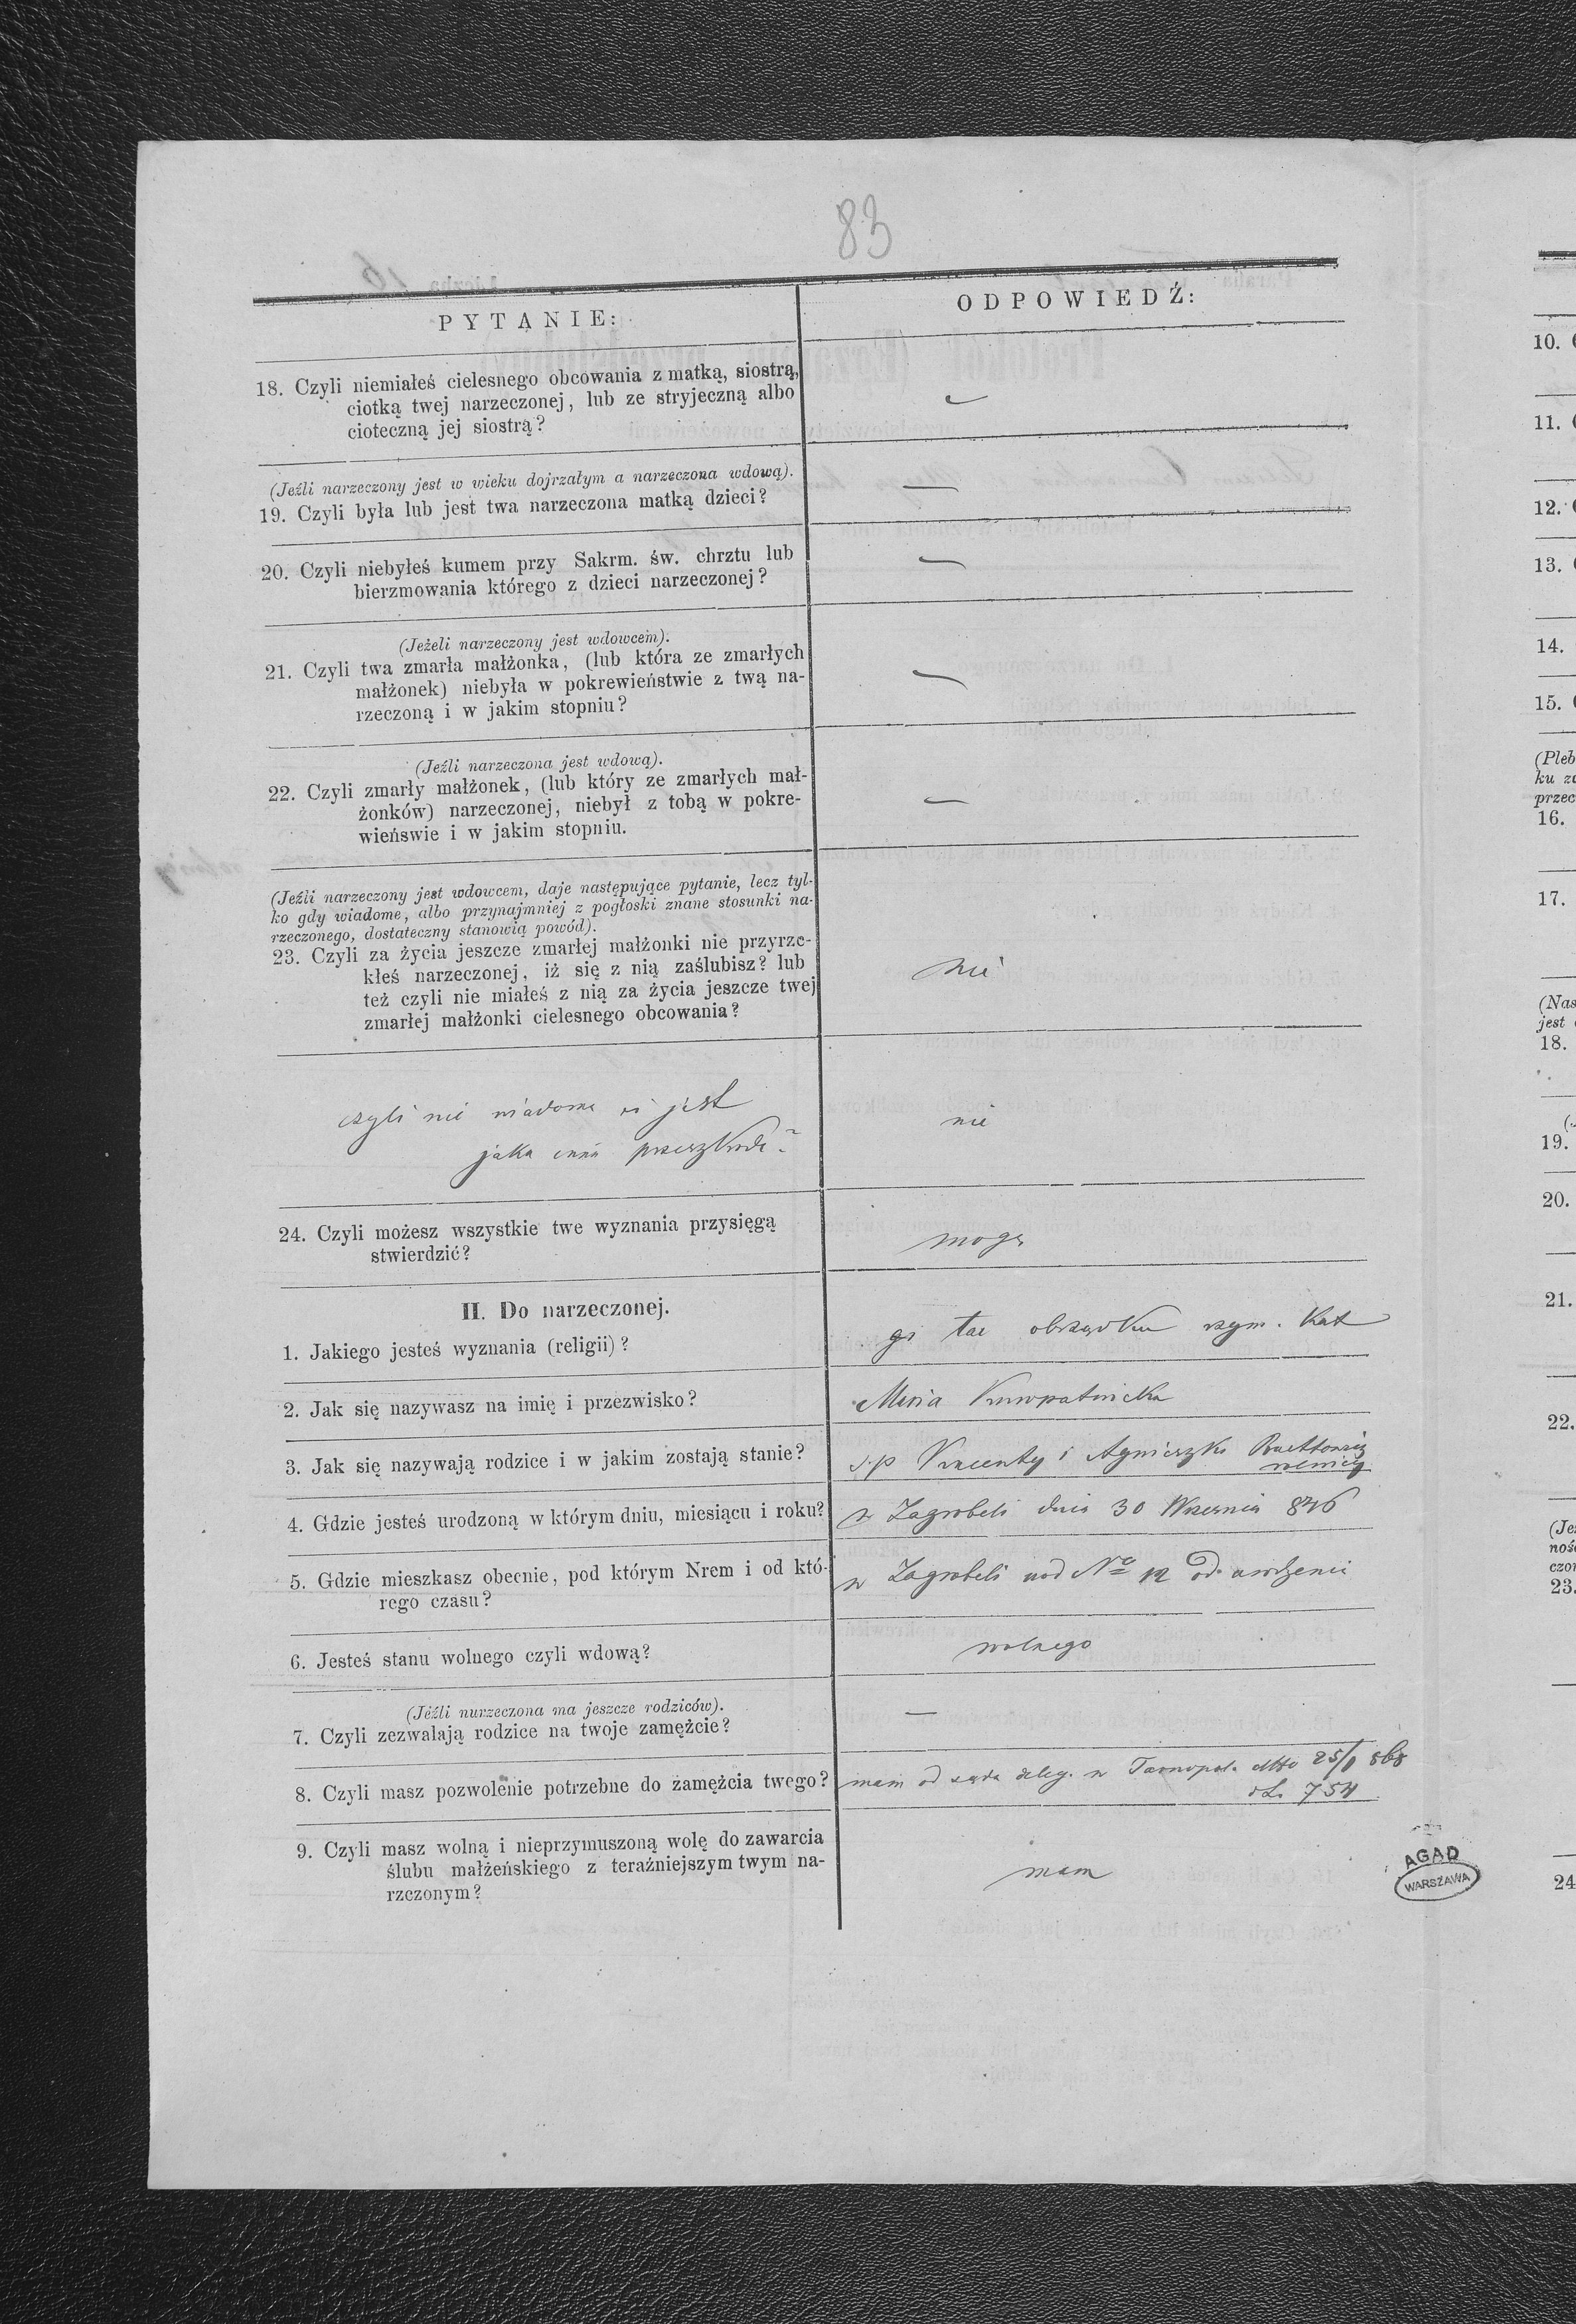 83
PYTANIE:
ODPOWIEDŹ:
18. Czyli niemiałeś cielesnego obcowania z matką, siostrą,
ciotką twej narzeczonej, lub ze stryjeczną albo
cioteczną jej siostrą?
(Jeźli narzeczony jest w wieku dojrzałym a narzeczona wdową).
—
19. Czyli była lub jest twa narzeczona matką dzieci?
20. Czyli niebyłeś kumem przy Sakrm. św. chrztu lub
bierzmowania którego z dzieci narzeczonej?
—
(Jeżeli narzeczony jest wdowcem).
21. Czyli twa zmarła małżonka, (lub która ze zmarłych
małżonek) niebyła w pokrewieństwie z twą na-
rzeczoną i w jakim stopniu?
—
(Jeźli narzeczona jest wdową).
22. Czyli zmarły małżonek, (lub który ze zmarłych mał-
żonków) narzeczonej, niebył z tobą w pokre-
wieńswie i w jakim stopniu.
—
(Jeźli narzeczony jest wdowcem, daje następujące pytanie, lecz tyl-
ko gdy wiadome, albo przynajmniej z pogłoski znane stosunki na-
rzeczonego, dostateczny stanowią powód).
23. Czyli za życia jeszcze zmarłej małżonki nie przyrze-
kłeś narzeczonej, iż się z nią zaślubisz? lub
też czyli nie miałeś z nią za życia jeszcze twej
zmarłej małżonki cielesnego obcowania?
nie
czyli nie wiadoma ci jest
jaka inna przeszkoda?
nie
24. Czyli możesz wszystkie twe wyznania przysięgą
stwierdzić?
mogę
II. Do narzeczonej.
1. Jakiego jesteś wyznania (religii)?
obrządku rzym. kat
2. Jak się nazywasz na imię i przezwisko?
Kuropatnicka
3. Jak się nazywają rodzice i w jakim zostają stanie?
ś.p Wincenty i Agnieszka
rolnicy
4. Gdzie jesteś urodzoną w którym dniu, miesiącu i roku?
w Zagrobeli dnia 30 Września 846
5. Gdzie mieszkasz obecnie, pod którym Nrem i od któ-
rego czasu?
w Zagrobeli pod Nº 12 od urodzenia
6. Jesteś stanu wolnego czyli wdową?
wolnego
(Jéźli nurzeczona ma jeszcze rodziców).
7. Czyli zezwalają rodzice na twoje zamężcie?
—
8. Czyli masz pozwolenie potrzebne do zamężcia twego?
mam od sądu deleg. w Tarnopolu ddto 868
754
9. Czyli masz wolną i nieprzymuszoną wolę do zawarcia
ślubu małżeńskiego z teraźniejszym twym na-
rzczonym?
mam
AGAD
WARSZAWA
10.
11.
12.
13.
14.
15.
(Pleb
ku
przec
16.
17.
(Nas
jest
18.
19.
20.
21.
22.
(Je
noś
czo
23.
24